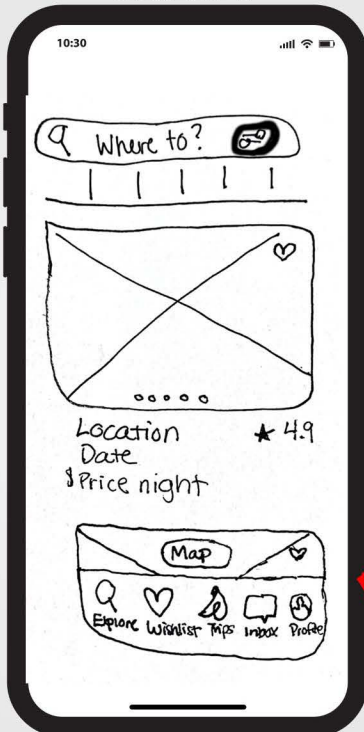 10:30
Where to?
Location ★ 4.9
Date
$Price night
Map
Explore Wishlist Trips Inbox Profile